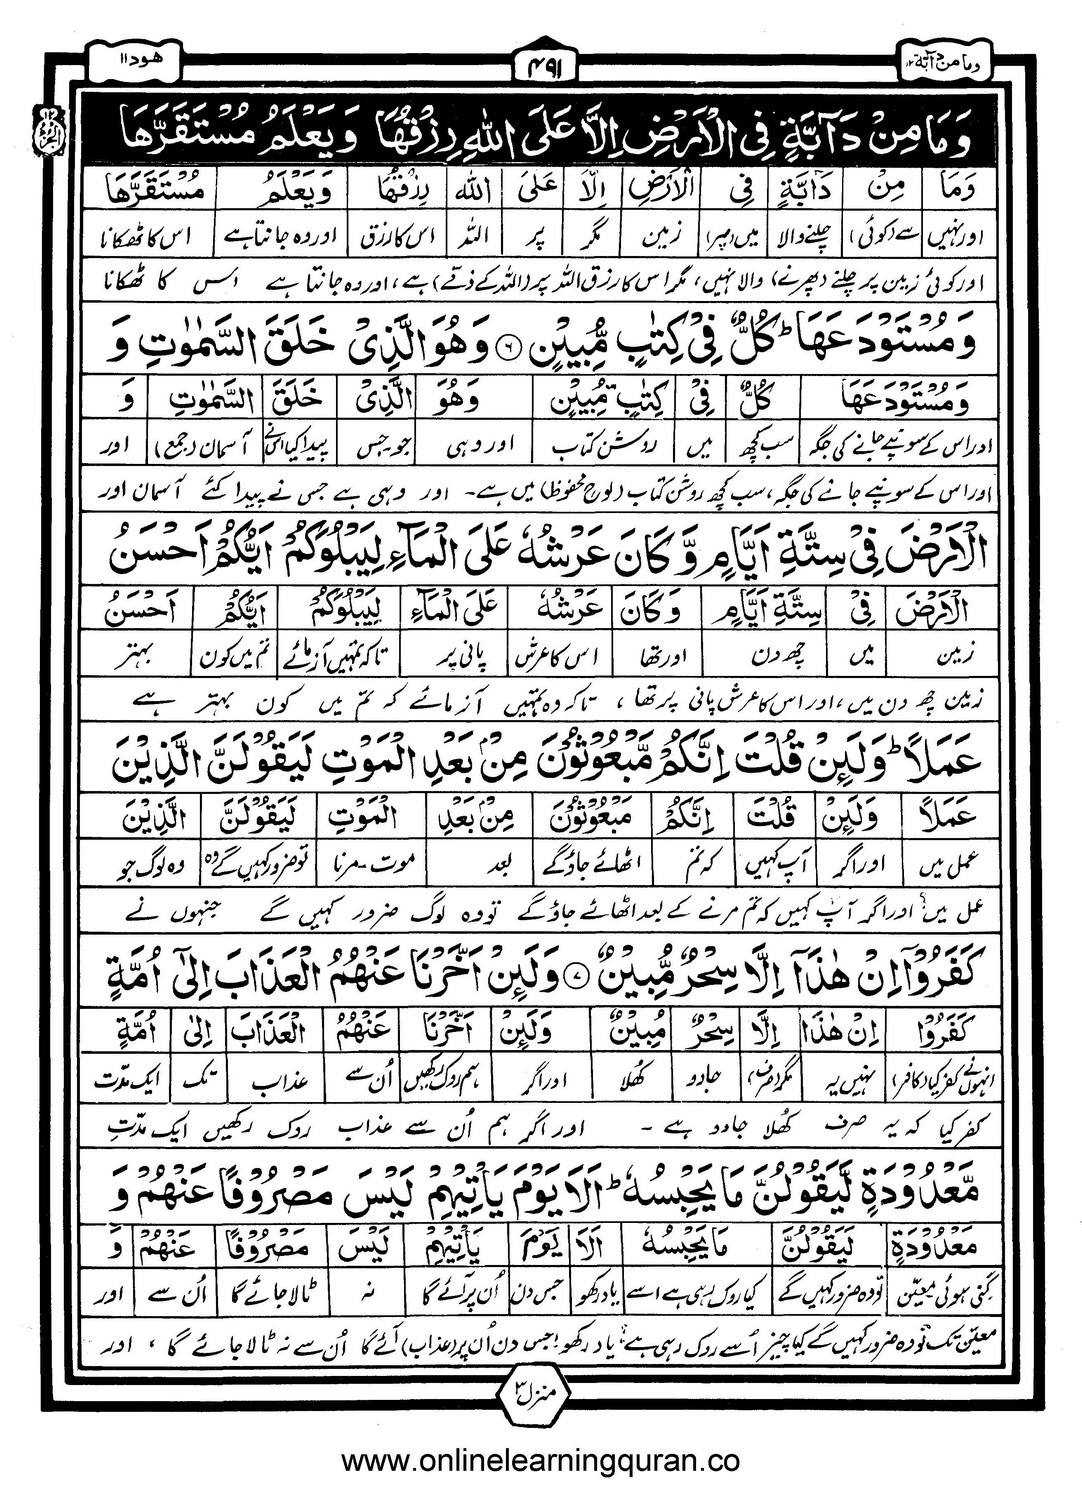 وما من دآبة ١٢
۴۹۱
ھود ۱۱
وَمَا مِنْ دَآبَّةٍ فِي الْاَرْضِ اِلَّا عَلَى اللّٰهِ رِزْقُهَا وَيَعْلَمُ مُسْتَقَرَّهَا
وَمَا مِنْ دَآبَّةٍ فِي الْاَرْضِ اِلَّا عَلَى اللّٰهِ رِزْقُهَا وَيَعْلَمُ مُسْتَقَرَّهَا
اور نہیں سے (کوئی) چلنے والا میں (پر) زمین مگر پر اللہ اس کا رزق اور وہ جانتا ہے اس کا ٹھکانا
اور کوئی زمین پر چلنے (پھرنے) والا نہیں، مگر اس کا رزق اللہ پر (اللہ کے ذمّے) ہے، اور وہ جانتا ہے اس کا ٹھکانا
وَمُسْتَوْدَعَهَا ؕ كُلٌّ فِيْ كِتٰبٍ مُّبِيْنٍ ۶ وَهُوَ الَّذِيْ خَلَقَ السَّمٰوٰتِ وَ
وَمُسْتَوْدَعَهَا كُلٌّ فِيْ كِتٰبٍ مُّبِيْنٍ وَهُوَ الَّذِيْ خَلَقَ السَّمٰوٰتِ وَ
اور اس کے سونپے جانے کی جگہ سب کچھ میں روشن کتاب اور وہی جو۔جس پیدا کیا اس نے آسمان (جمع) اور
اور اس کے سونپے جانے کی جگہ، سب کچھ روشن کتاب (لوح محفوظ) میں ہے۔ اور وہی ہے جس نے پیدا کئے آسمان اور
الْاَرْضَ فِيْ سِتَّةِ اَيَّامٍ وَّكَانَ عَرْشُهٗ عَلَى الْمَآءِ لِيَبْلُوَكُمْ اَيُّكُمْ اَحْسَنُ
الْاَرْضَ فِيْ سِتَّةِ اَيَّامٍ وَكَانَ عَرْشُهٗ عَلَى الْمَآءِ لِيَبْلُوَكُمْ اَيُّكُمْ اَحْسَنُ
زمین میں چھ دن اور تھا اس کا عرش پانی پر تاکہ تمہیں آزمائے تم میں کون بہتر
زمین چھ دن میں، اور اس کا عرش پانی پر تھا، تاکہ وہ تمہیں آزمائے کہ تم میں کون بہتر ہے
عَمَلًا ؕ وَلَئِنْ قُلْتَ اِنَّكُمْ مَّبْعُوْثُوْنَ مِنْۢ بَعْدِ الْمَوْتِ لَيَقُوْلَنَّ الَّذِيْنَ
عَمَلًا وَلَئِنْ قُلْتَ اِنَّكُمْ مَبْعُوْثُوْنَ مِنْۢ بَعْدِ الْمَوْتِ لَيَقُوْلَنَّ الَّذِيْنَ
عمل میں اور اگر آپ کہیں کہ تم اٹھائے جاؤ گے بعد موت۔مرنا تو ضرور کہیں گے وہ وہ لوگ جو
عمل میں؟ اور اگر آپ کہیں کہ تم مرنے کے بعد اٹھائے جاؤ گے تو وہ لوگ ضرور کہیں گے جنہوں نے
كَفَرُوْٓا اِنْ هٰذَآ اِلَّا سِحْرٌ مُّبِيْنٌ ۷ وَلَئِنْ اَخَّرْنَا عَنْهُمُ الْعَذَابَ اِلٰٓى اُمَّةٍ
كَفَرُوْٓا اِنْ هٰذَآ اِلَّا سِحْرٌ مُبِيْنٌ وَلَئِنْ اَخَّرْنَا عَنْهُمُ الْعَذَابَ اِلٰى اُمَّةٍ
انہوں نے کفر کیا (کافر) نہیں یہ مگر (صرف) جادو کھُلا اور اگر ہم روک رکھیں اُن سے عذاب تک ایک مدّت
کفر کیا کہ یہ صرف کھُلا جادو ہے۔ اور اگر ہم اُن سے عذاب روک رکھیں ایک مدّتِ
مَّعْدُوْدَةٍ لَّيَقُوْلُنَّ مَا يَحْبِسُهٗ ؕ اَلَا يَوْمَ يَاْتِيْهِمْ لَيْسَ مَصْرُوْفًا عَنْهُمْ وَ
مَعْدُوْدَةٍ لَيَقُوْلُنَّ مَا يَحْبِسُهٗ اَلَا يَوْمَ يَاْتِيْهِمْ لَيْسَ مَصْرُوْفًا عَنْهُمْ وَ
گنی ہوئی معیّن تو وہ ضرور کہیں گے کیا روک رہی ہے اسے یاد رکھو جس دن اُن پر آئے گا نہ ٹالا جائے گا اُن سے اور
معیّن تک تو وہ ضرور کہیں گے کیا چیز اُسے روک رہی ہے؟ یاد رکھو! جس دن اُن پر (عذاب) آئے گا اُن سے نہ ٹالا جائے گا، اور
منزل ۳
www.onlinelearningquran.co